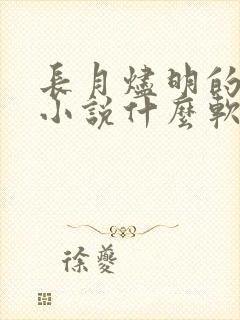 長月燼明的
小說什麼軟
徐夔